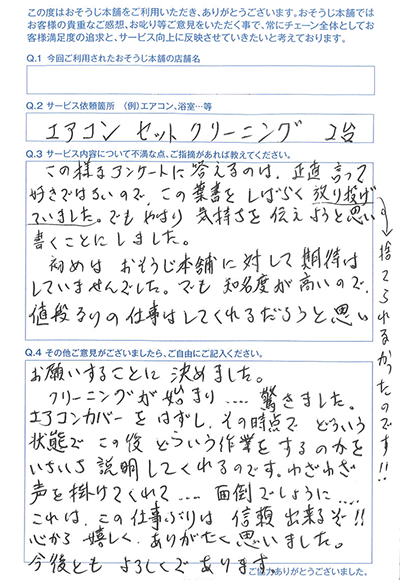 この度はおそうじ本舗をご利用いただき、ありがとうございます。おそうじ本舗では
お客様の貴重なご感想、お叱り等ご意見をいただく事で、常にチェーン全体としてお
客様満足度の追求と、サービス向上に反映させていきたいと考えております。
Q.1 今回ご利用されたおそうじ本舗の店舗名
Q.2 サービス依頼箇所 (例)エアコン、浴室…等
エアコン セットクリーニング 2台
Q.3 サービス内容について不満な点、ご指摘があれば教えてください。
この様なアンケートに答えるのは、正直言って
好きではないので、この葉書をしばらく放り投げ
ていました。でもやはり 気持ちを伝えようと思い
書くことにしました。
初めは おそうじ本舗に対して期待は
していませんでした。でも 知名度が高いので、
値段なりの仕事はしてくれるだろうと思い
→捨てられなかったのです!!
Q.4 その他ご意見がございましたら、ご自由にご記入ください。
お願いすることに 決めました。
クリーニングが始まり…. 驚きました。
エアコンカバーをはずし、その時点で どういう
状態で この後 どういう作業をするのかを
いちいち 説明してくれるのです。わざわざ
声を掛けてくれて …. 面倒でしょうに ….
これは、この仕事ぶりは 信頼出来るぞ!!
心から 嬉しく、ありがたく思いました。
今後とも よろしくであります。
ご協力ありがとうございました。